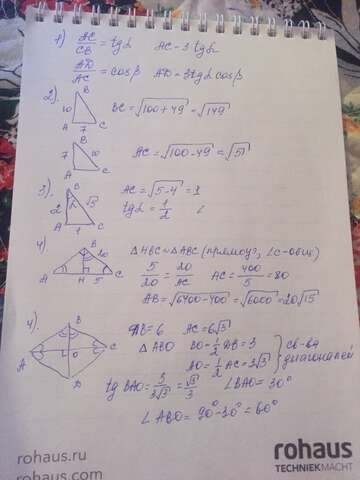 1) AC/CB = tgα AC = 3 tgα
AD/AC = cosβ AD = 3tgα cosβ
2). B 10 A 7 C BC = √100+49 = √149
B 7 10 A C AC = √100-49 = √51
3) B 2 α √5 A 1 C AC = √5-4 = 1
tgα = 1/2
4) B 20 A H 5 C △HBC ∾ △ABC (прямоуг, ∠C-общ)
5/20 = 20/AC AC = 400/5 = 80
AB = √6400-400 = √6000 = 20√15
4). B A O C D DB = 6 AC = 6√3
△ABO BO = 1/2 DB = 3
AO = 1/2 AC = 3√3
св-ва
диагоналей
tg BAO = 3/3√3 = √3/3 ∠BAO = 30°
∠ABO = 90° - 30° = 60°
rohaus.ru
rohaus.com
rohaus
TECHNIEKMACHT